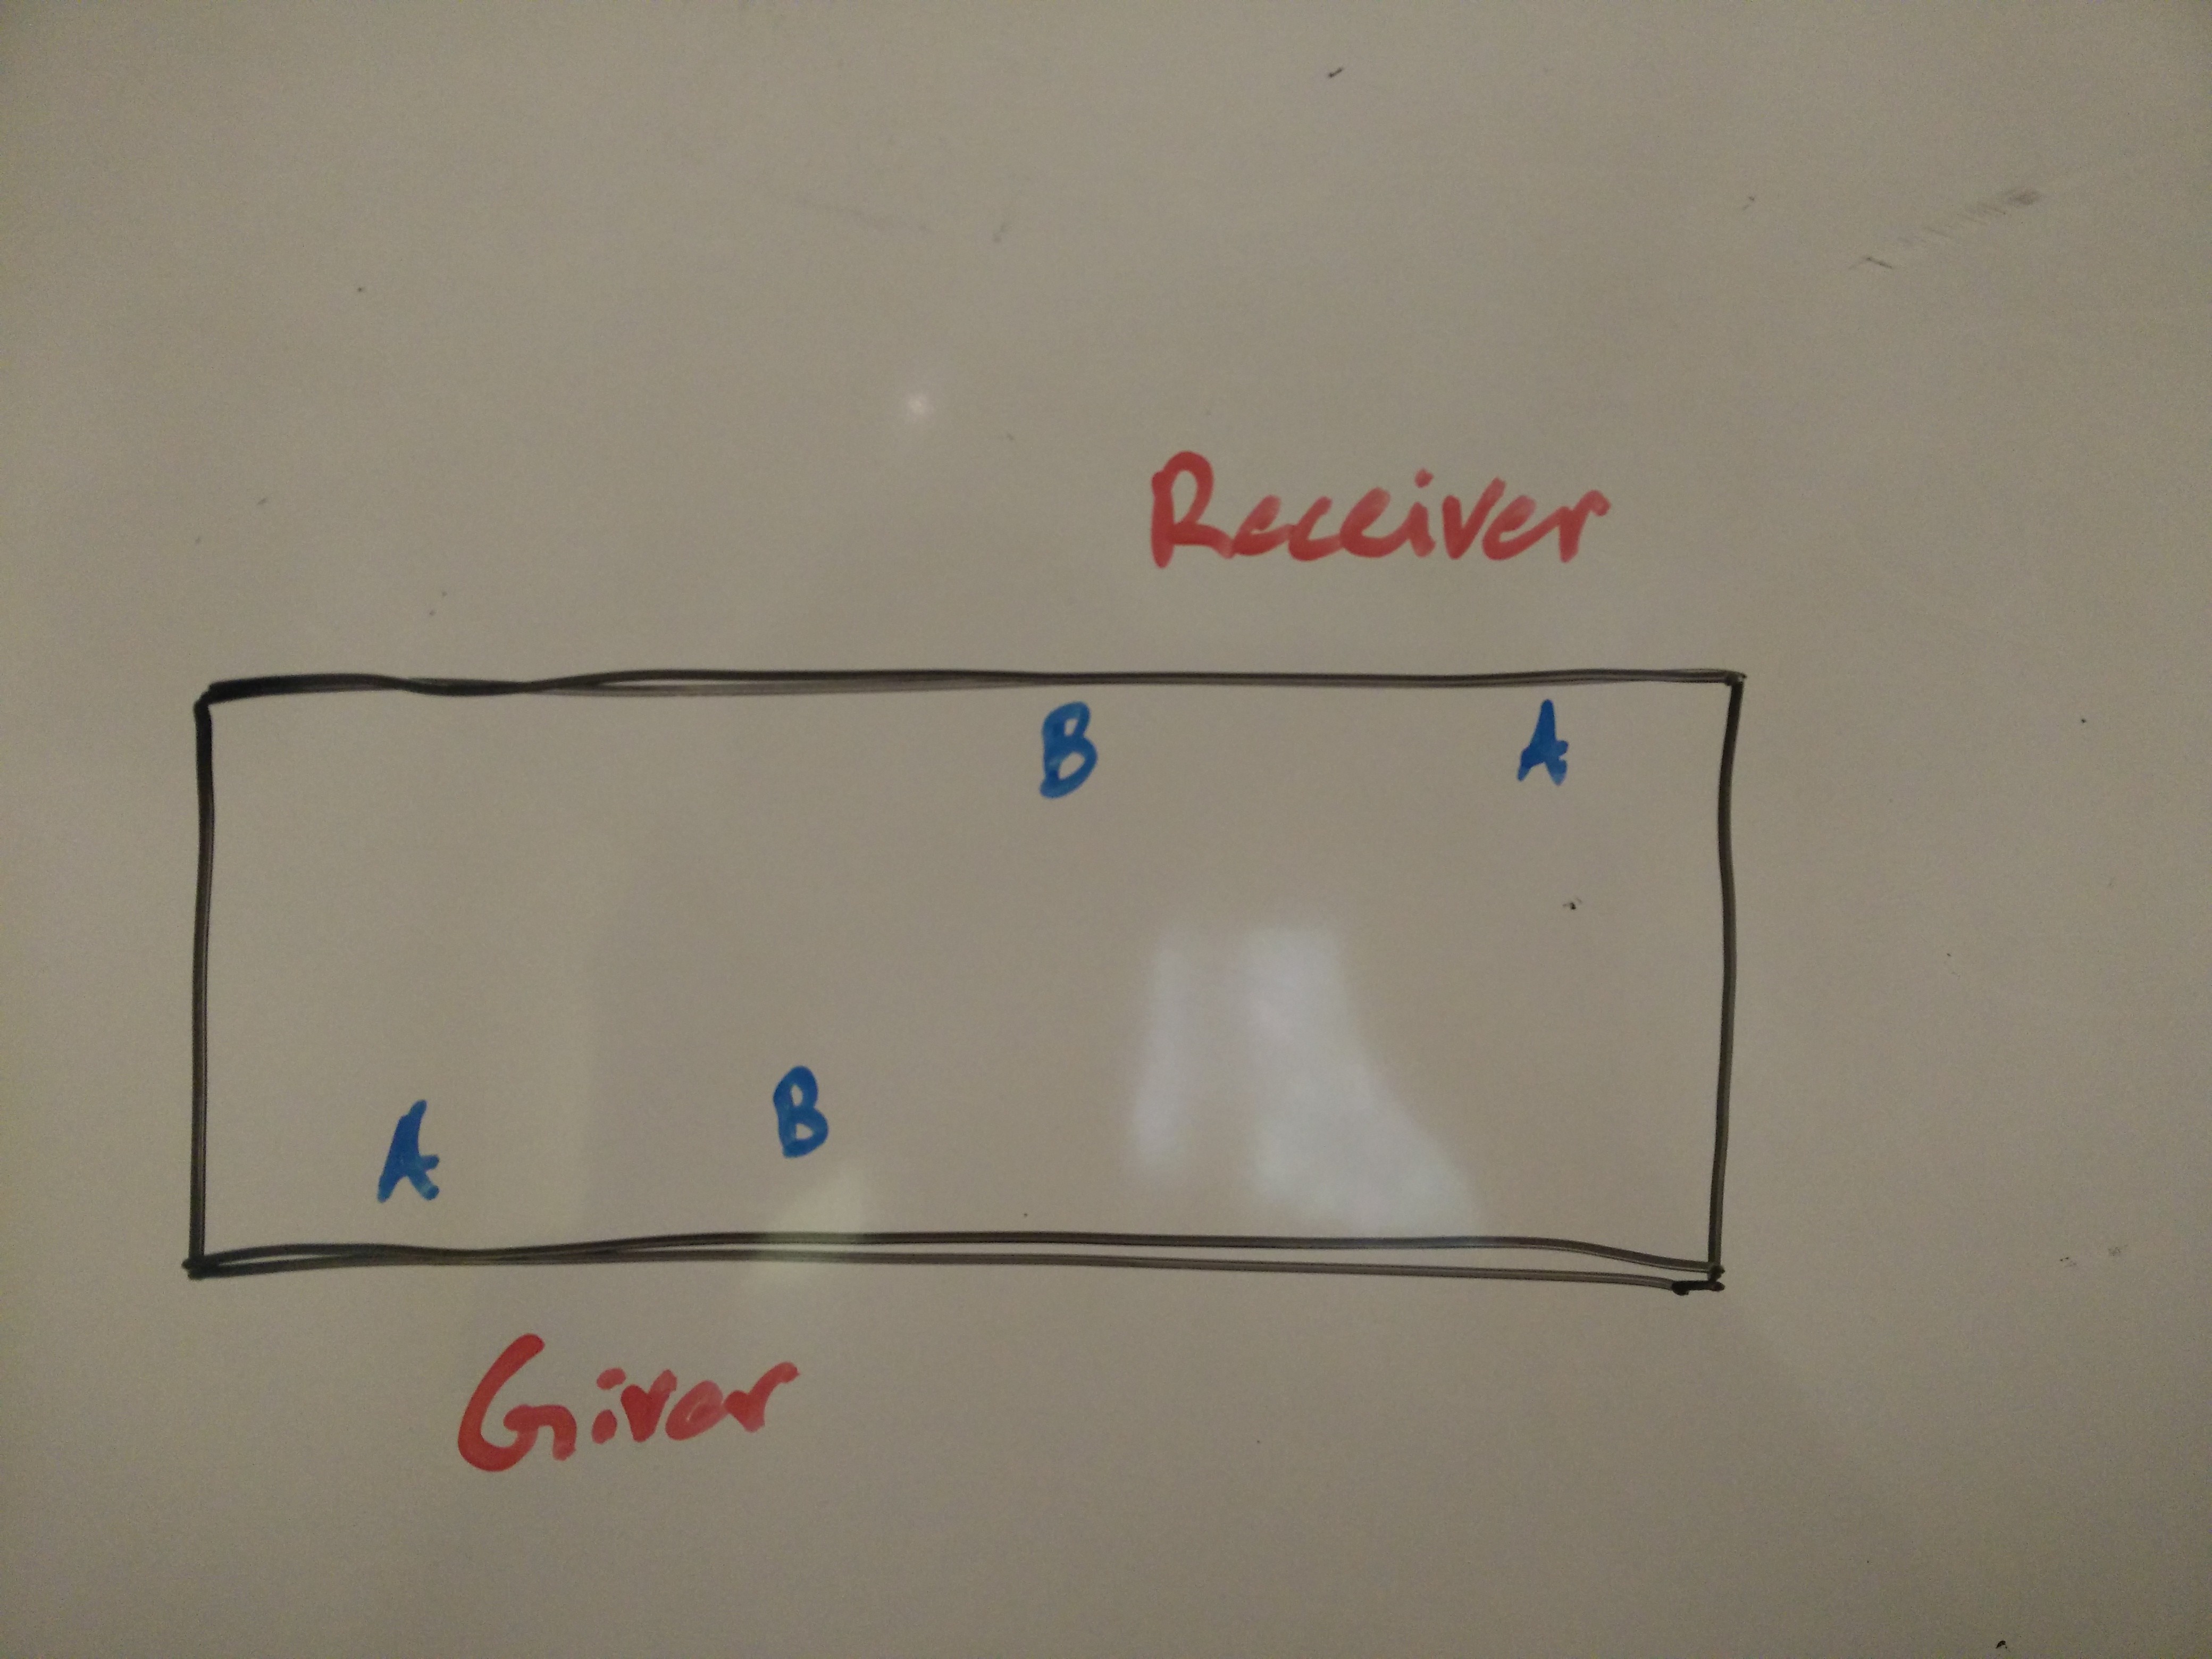 Receiver
B A
A B
Giver